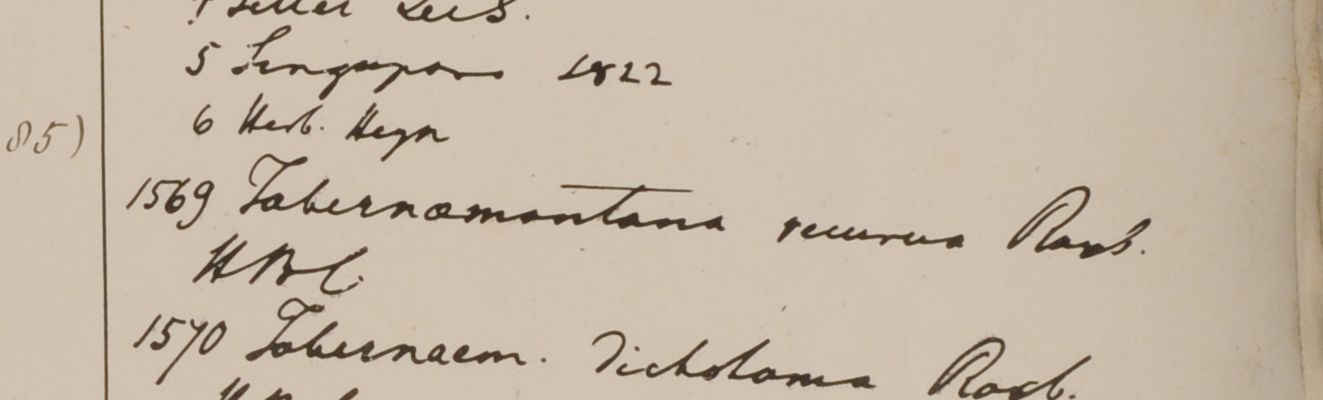 5 Singapore 1822
85)
6 Herb. Heyn
1569 Tabernæmontana recurva Roxb.
HBC.
1570 Tabernaem. dichotoma Roxb.